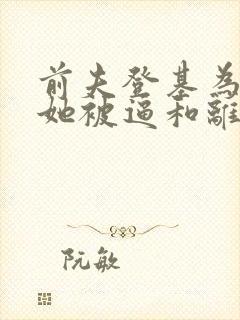 前夫登基為
她被逼和離
阮敏